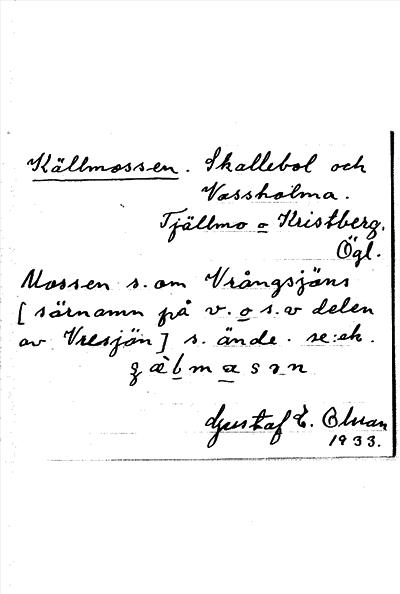 Källmossen. Skallebol och
Vassholma.
Tjällmo o Kristberg.
Ögl.
Mossen s. om Vrångsjöns
[särnamn på v. o s.v delen
av Vresjön] s. ände. se: ek.
Gustaf E.
1933.